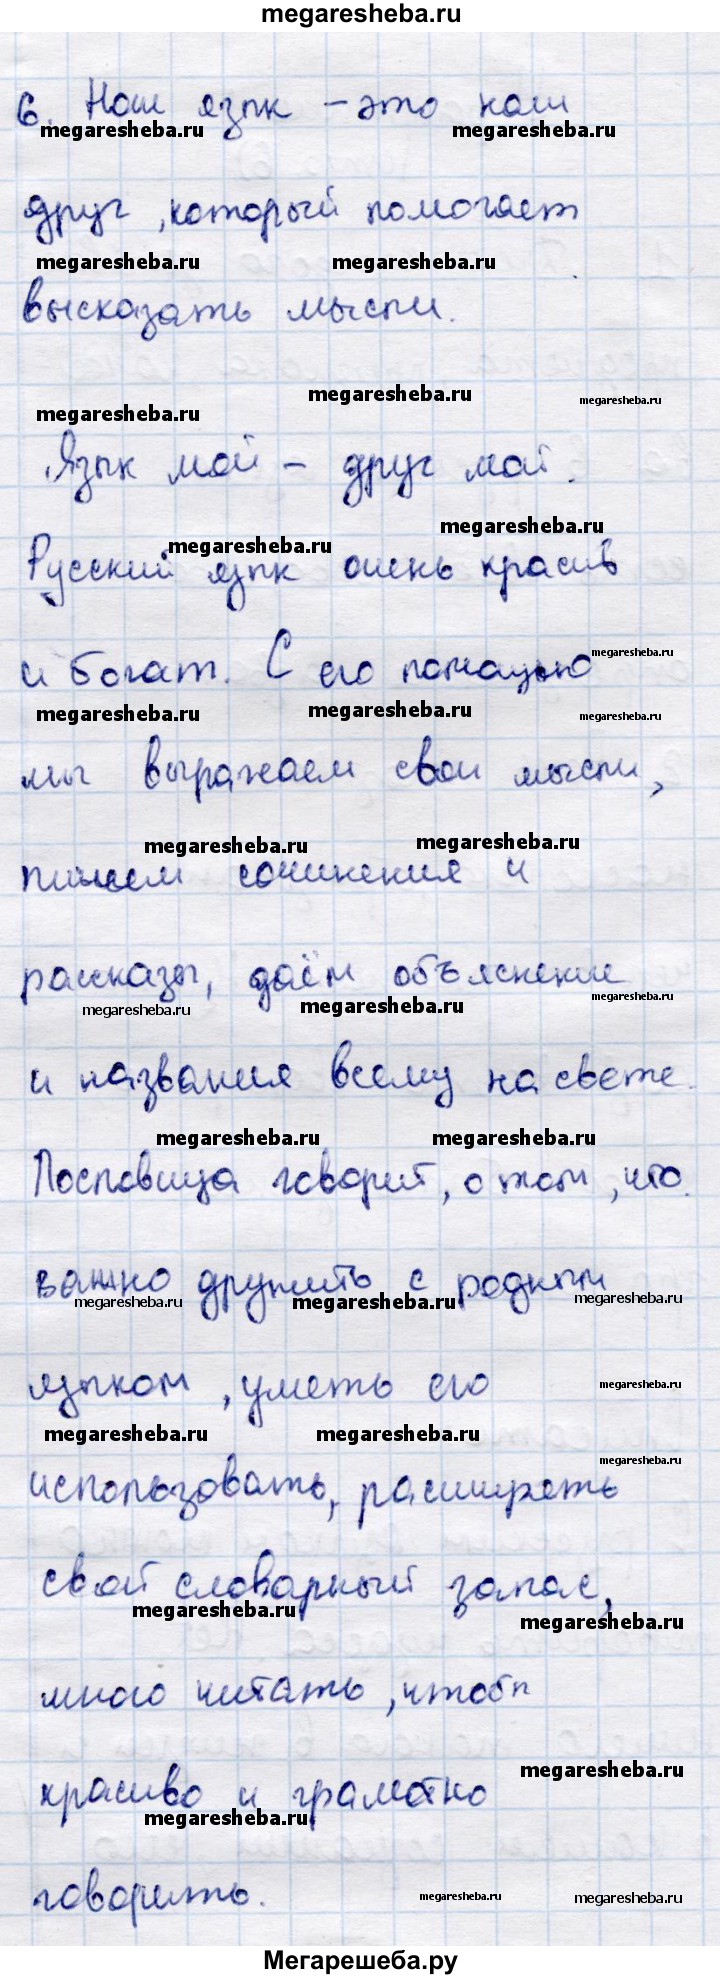 megaresheba.ru
6. Наш язык – это наш
megaresheba.ru megaresheba.ru
друг, который помогает
megaresheba.ru megaresheba.ru
высказать мысли.
megaresheba.ru megaresheba.ru
megaresheba.ru
Язык мой – друг мой.
megaresheba.ru
megaresheba.ru
Русский язык очень красив
и богат. С его помощью
megaresheba.ru
megaresheba.ru megaresheba.ru megaresheba.ru
мы выражаем свои мысли,
megaresheba.ru megaresheba.ru
пишем сочинения и
рассказы, даём объяснение
megaresheba.ru megaresheba.ru megaresheba.ru
и названия всему на свете.
megaresheba.ru megaresheba.ru
Пословица говорит, о том, что
важно дружить с родным
megaresheba.ru megaresheba.ru megaresheba.ru
языком, уметь его
megaresheba.ru
megaresheba.ru megaresheba.ru
megaresheba.ru
использовать, расширять
свой словарный запас,
megaresheba.ru megaresheba.ru
много читать, чтобы
красиво и грамотно
megaresheba.ru
megaresheba.ru
говорить.
megaresheba.ru megaresheba.ru
Мегарешеба.ру